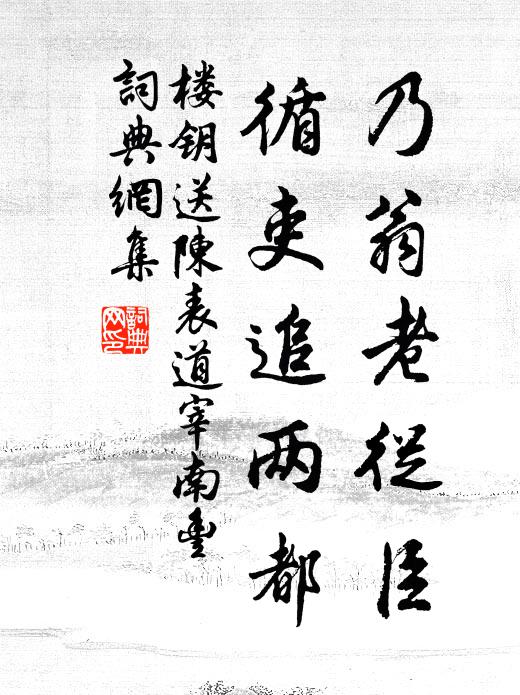 乃翁老從臣
循吏追兩都
楼钥送陳表道宰南豊
詞典網集
詞典网印